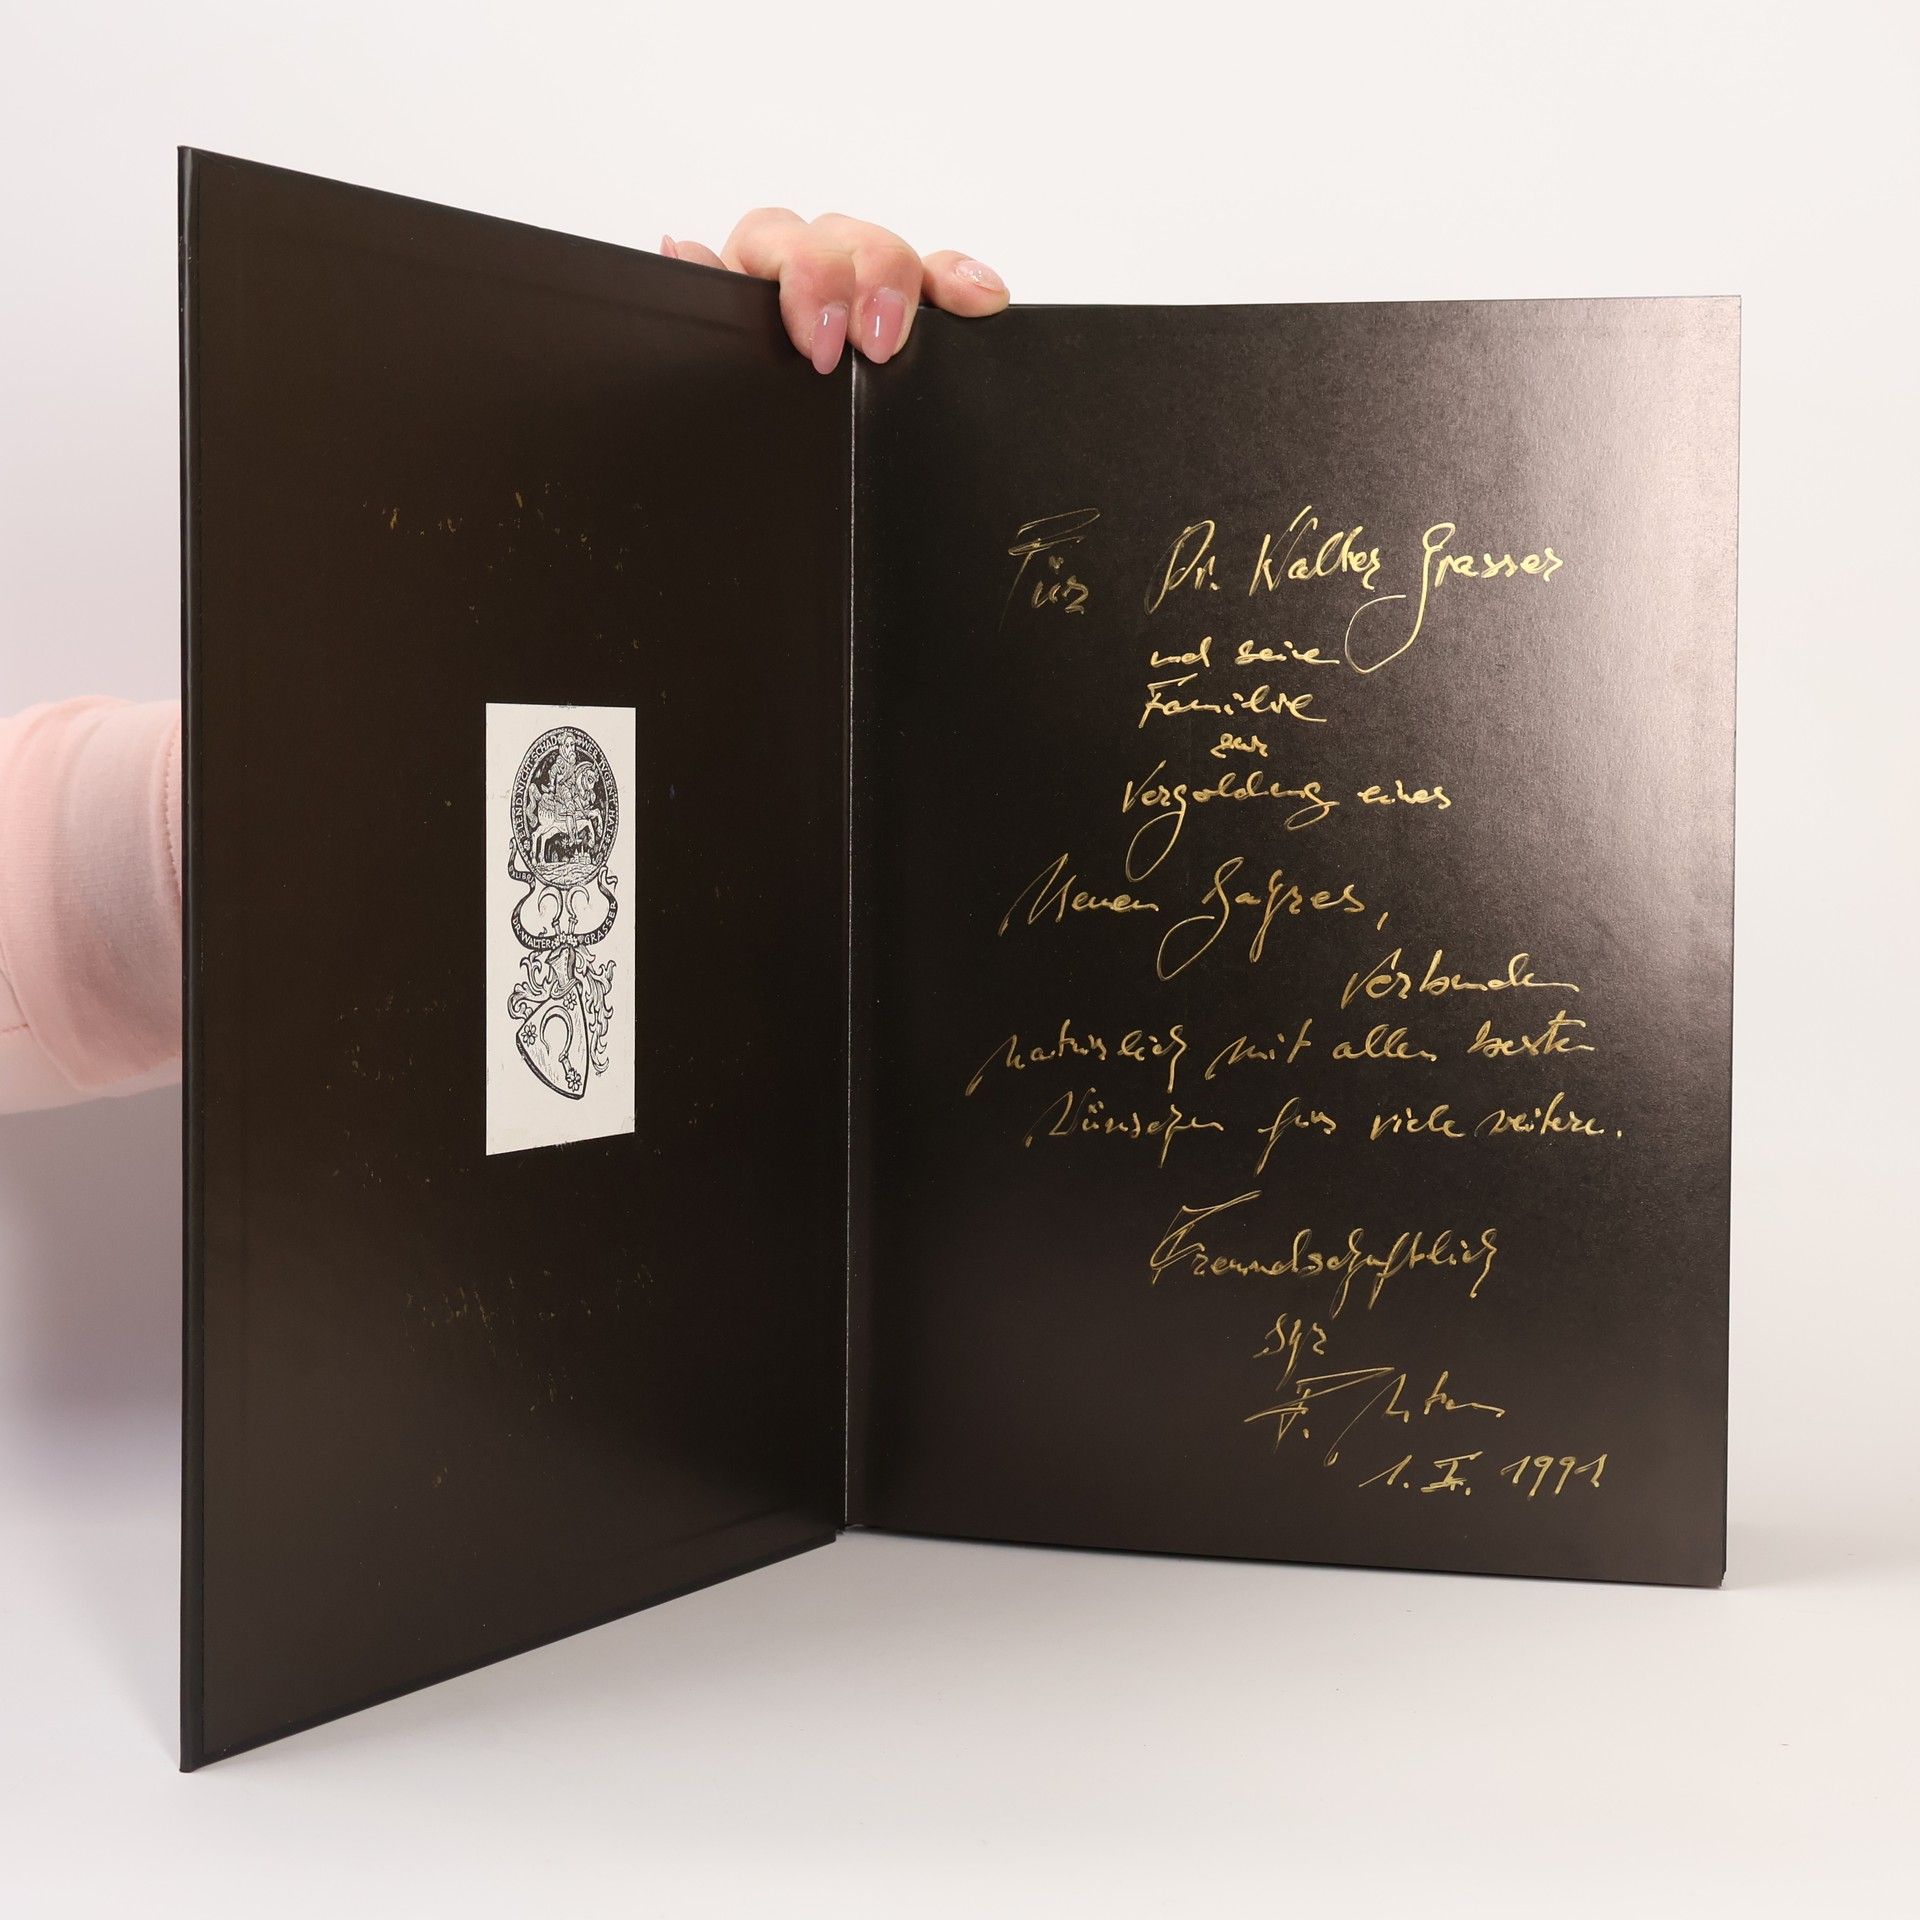 ELEND NICHT SCHAD WER TVGENT HAT
EX LIBR
DR·WALTER GRASSER
Für Dr. Walter Grasser
und seine
Familie
zur
Vergoldung eines
Neuen Jahres,
Verbunden
natürlich mit allen besten
Wünschen für viele weitere.
Freundschaftlich
Ihr
F.
1. I. 1991